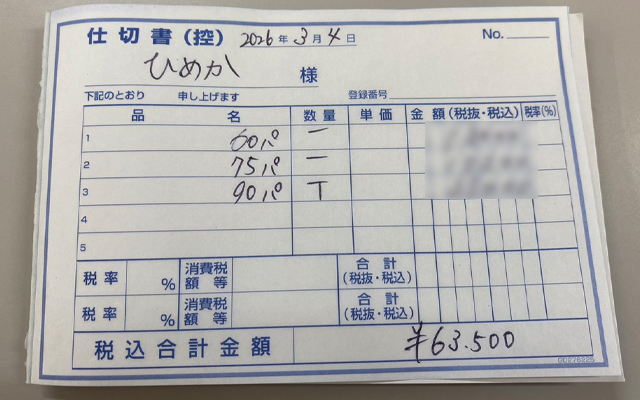 仕切書(控) 2026年3月4日 No.
ひめか 様
下記のとおり 申し上げます 登録番号
品名 数量 単価 金額(税抜・税込) 税率(%)
1 60パ 一
2 75パ 一
3 90パ T
4
5
税率 % 消費税額等 合計(税抜・税込)
税率 % 消費税額等 合計(税抜・税込)
税込合計金額 ¥63.500